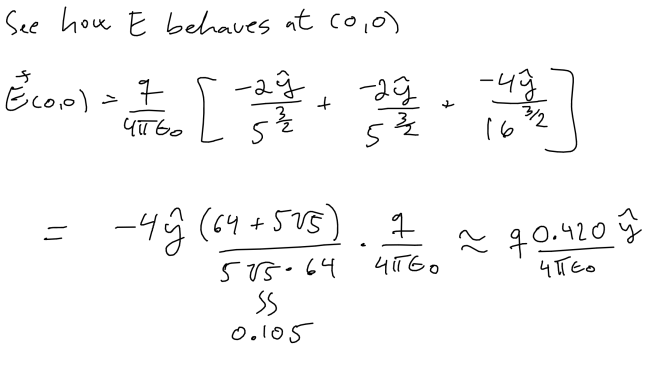 See how E behaves at (0,0)
\vec{E}(0,0) = \frac{q}{4πϵ_0} [ \frac{-2ŷ}{5^{3/2}} + \frac{-2ŷ}{5^{3/2}} + \frac{-4ŷ}{16^{3/2}} ]
= -4ŷ \frac{(64 + 5√5)}{5√5 · 64} · \frac{q}{4πϵ_0} ≈ q \frac{0.420}{4πϵ_0} ŷ
≈
0.105